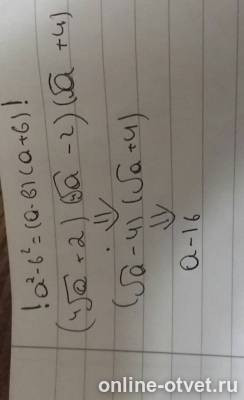 ! a²-b²=(a-b)(a+b)!
(⁴√a+2)(⁴√a-2)(√a+4)
⇓
(√a-4)(√a+4)
⇓
a-16
online-otvet.ru